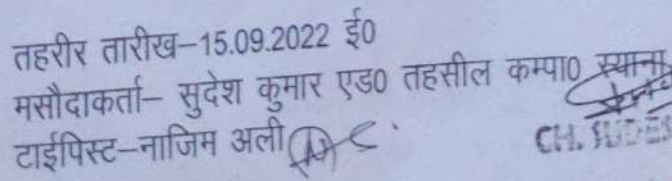 तहरीर तारीख–15.09.2022 ई0
मसौदाकर्ता– सुदेश कुमार एड0 तहसील कम्पा0 स्याना
टाईपिस्ट–नाजिम अली
CH.